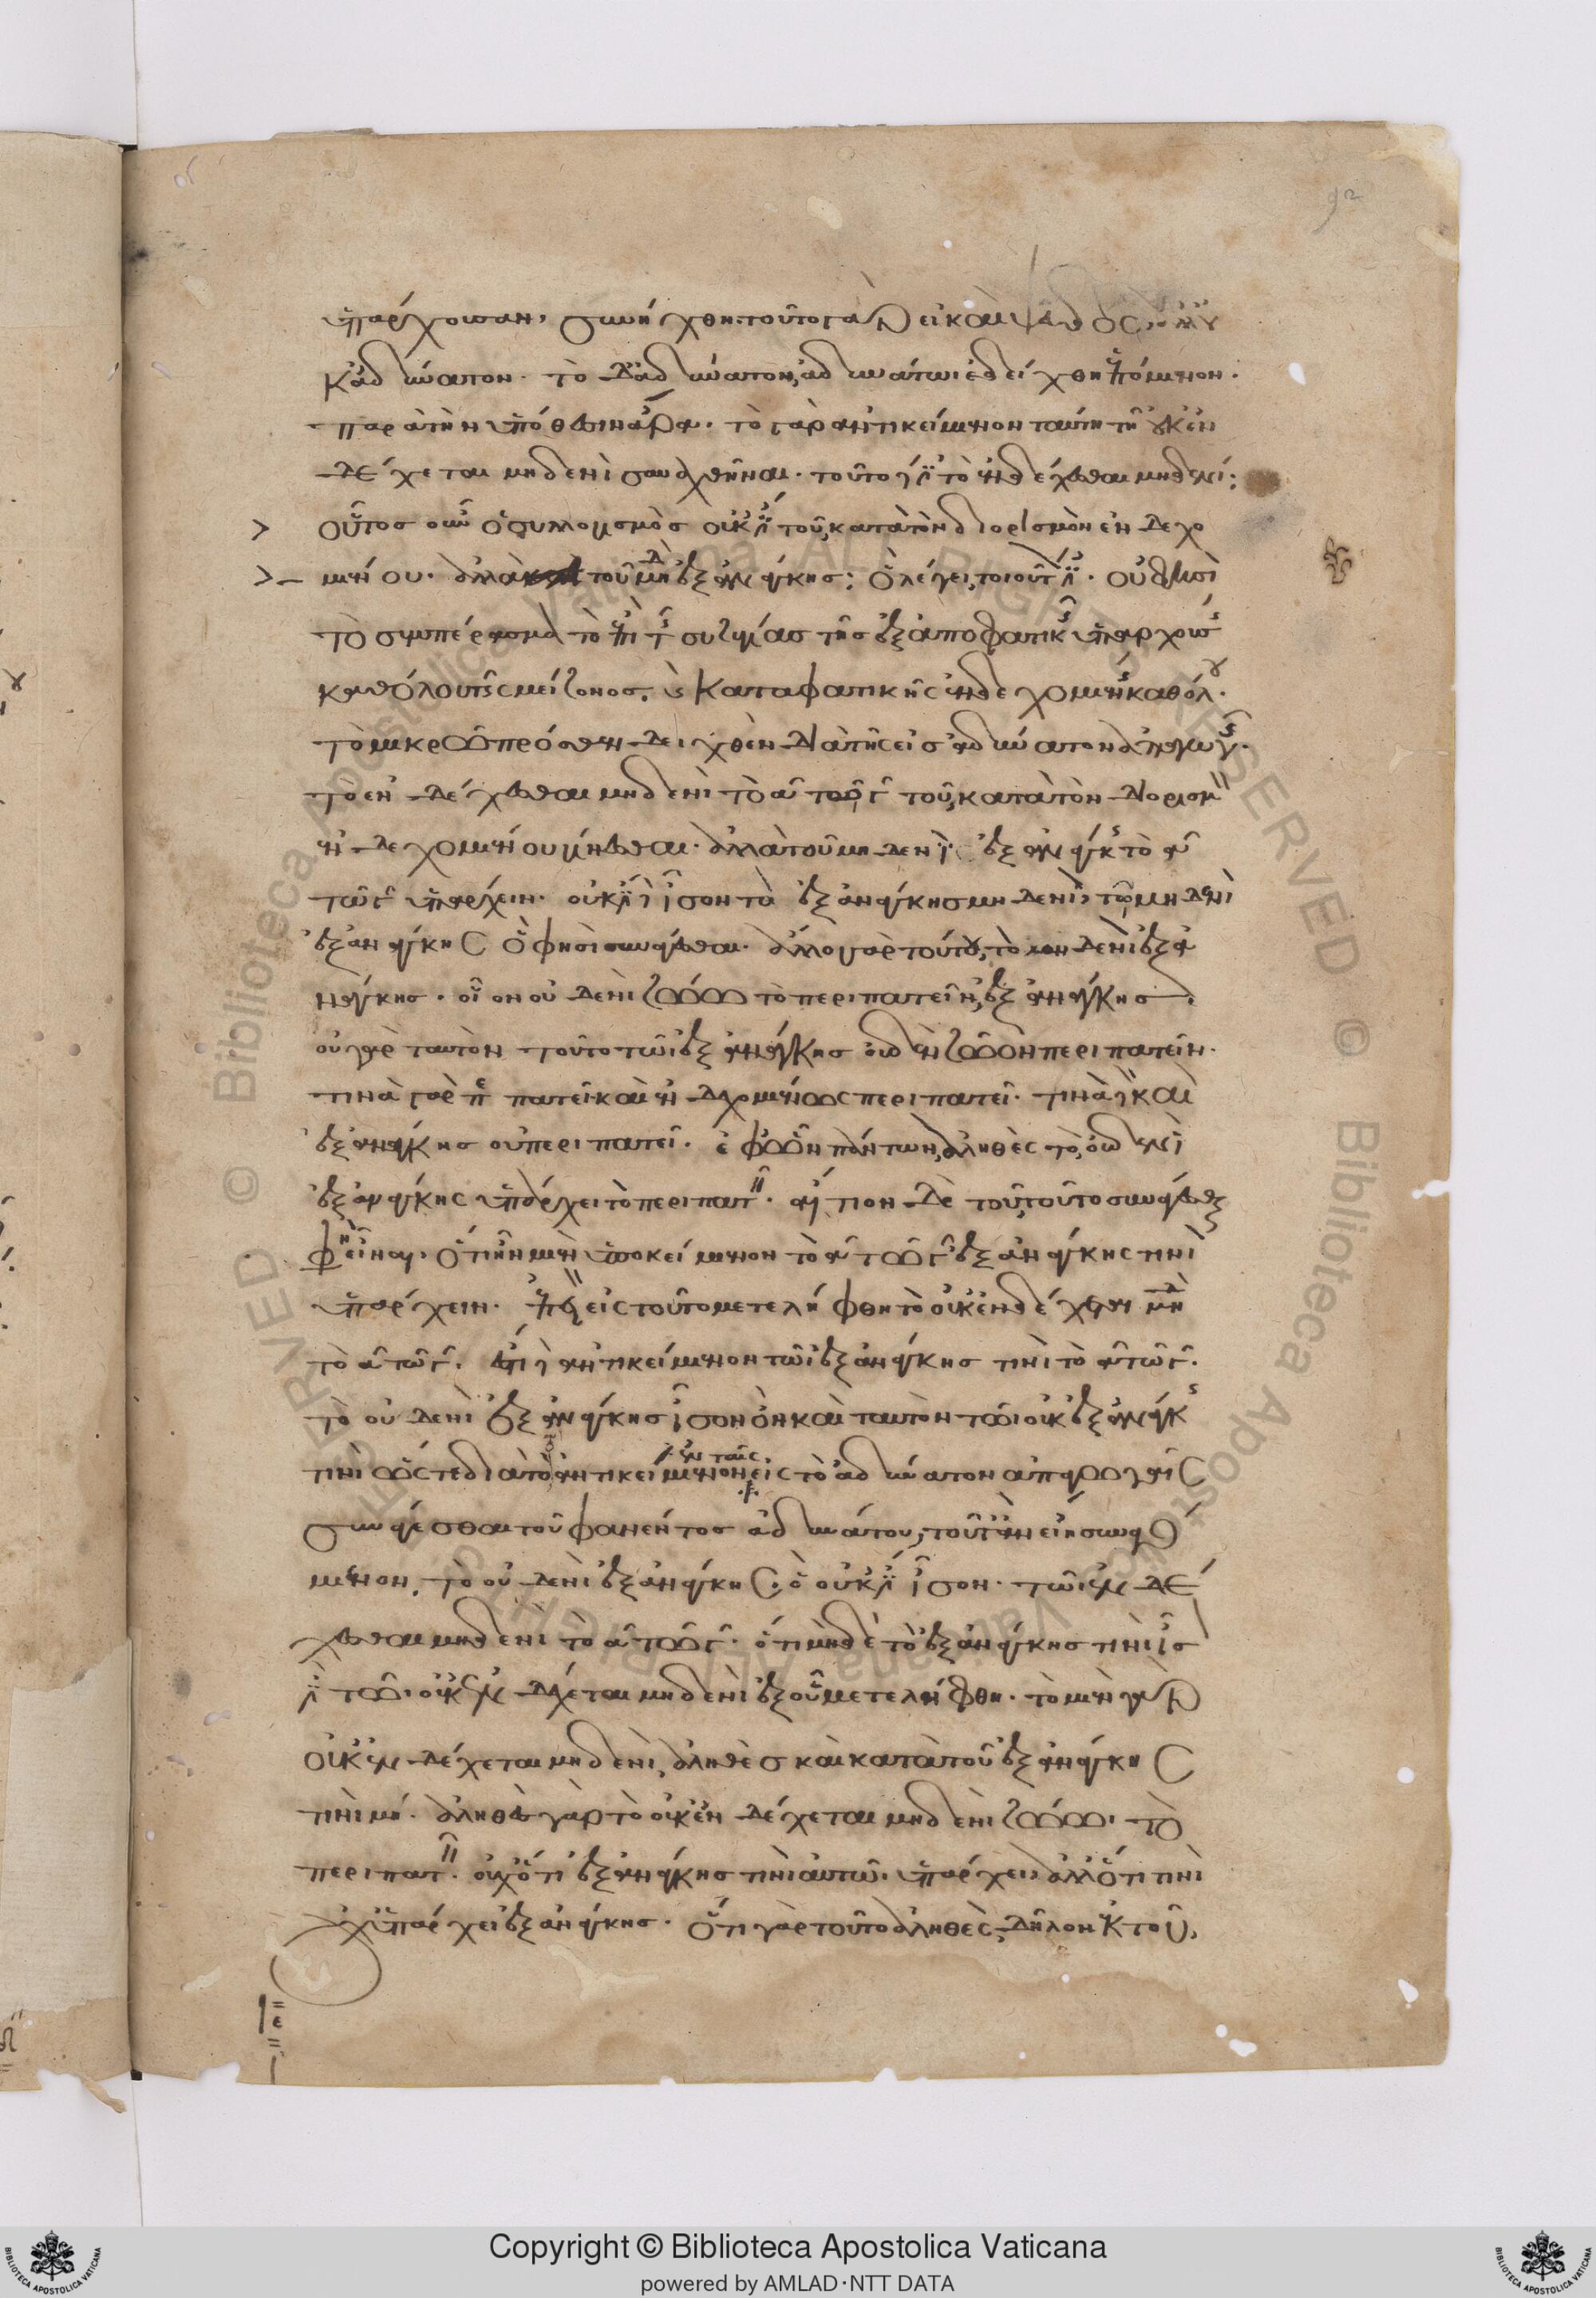 92
ὑπάρχουσαν, συνήχθη· τοῦτο γὰρ εἰ καὶ ψεῦδος, ἀλλ' οὐ
κ ἀδύνατον. τὸ δ' ἀδύνατον, ἀδυνάτωι ἐδείχθη ἑπόμενον.
παρὰ τὴν ὑπόθεσιν ἄρα. τὸ γὰρ ἀντικείμενον ταύτη τῆ οὐκ ἐν
δέχεται μηδενὶ συναχθῆναι. τοῦτο γάρ ἐστι τὸ ἐνδέχεσθαι μηδενί:
> οὗτος οὖν ὁ συλλογισμὸς οὐκ ἔστι τοῦ κατὰ τὸν διορισμὸν ἐνδεχο
>– μένου. ἀλλὰ τοῦ μηδενὶ ἐξ ἀνάγκης: ὃ λέγει, τοιοῦτόν ἐστι. οὐδέ φησι
τὸ συμπέρασμα τὸ ἐπὶ τῆς συζυγίας τῆς ἐξ ἀποφατικῆς ὑπαρχούσης
καθόλου τῆς μείζονος, καὶ καταφατικῆς ἐνδεχομένης καθόλου.
τὸ μικρῶ πρόσθεν δειχθὲν διὰ τῆς εἰς ἀδύνατον ἀπαγωγῆς.
τὸ ἐνδέχεσθαι μηδενὶ τὸ α τῶ γ τοῦ κατὰ τὸν διορισμὸν
ἐνδεχομένου γίνεσθαι. ἀλλὰ τοῦ μηδενὶ ἐξ ἀνάγκης τὸ α
τῶ γ ὑπάρχειν. οὐκ ἔστι δὲ ἴσον τὸ ἐξ ἀνάγκης μηδενὶ, τῶ μηδενὶ
ἐξ ἀνάγκης ὅ φησι συνάγεσθαι. ἄλλο γὰρ τούτου, τὸ μηδενὶ ἐξ ἀ
νάγκης. οἷον οὐδενὶ ζώω τὸ περιπατεῖν, ἐξ ἀνάγκης.
οὐ γὰρ ταὐτὸν τοῦτο τῶι ἐξ ἀνάγκης οὐδὲν ζῶον περιπατεῖν.
τινὰ γὰρ περιπατεῖ καὶ ἐνδεχομένως περιπατεῖ. τινὰ δὲ καὶ
ἐξ ἀνάγκης οὐ περιπατεῖ. ἐφ' ὧν πάντων, ἀληθὲς τὸ, οὐδενὶ
ἐξ ἀνάγκης ὑπάρχει τὸ περιπατεῖν. αἴτιον δὲ τοῦ τοῦτο συνάγεσθαι
φησὶν εἶναι. ὅτι ἦν μὲν ὑποκείμενον τὸ α τῶ γ ἐξ ἀνάγκης τινὶ
ὑπάρχειν. ἐπεὶ εἰς τοῦτο μετελήφθη τὸ οὐκ ἐνδέχεσθαι μηδενὶ
τὸ α τῶ γ. ἔστι δὲ ἀντικείμενον τῶι ἐξ ἀνάγκης τινὶ τὸ α τῶ γ.
τὸ οὐδενὶ ἐξ ἀνάγκης ἴσον ὂν καὶ ταὐτὸν τῶι οὐκ ἐξ ἀνάγκης
τινὶ ὥστε διὰ τὸ ἀντικείμενον εἰς τὸ ἀδύνατον ἀπαγωγῆς
ἐν ταῖς
συνάγεσθαι τοῦ φανέντος ἀδυνάτου, τοῦτ' ἂν εἴη συναγό
μενον, τὸ οὐδενὶ ἐξ ἀνάγκης. ὃ οὐκ ἔστιν ἴσον. τῶι ἐνδέ
χεσθαι μηδενὶ τὸ α τῶ γ. ὅτι μηδὲ τὸ ἐξ ἀνάγκης τινὶ ἴσον
ἐστὶ τῶι οὐκ ἐνδέχεται μηδενὶ ἐξ οὗ μετελήφθη. τὸ μὲν γὰρ
οὐκ ἐνδέχεται μηδενὶ, ἀληθὲς καὶ κατὰ τοῦ ἐξ ἀνάγκης
τινὶ μή. ἀληθὲς γὰρ τὸ οὐκ ἐνδέχεται μηδενὶ ζώωι τὸ
περιπατεῖν. οὐχ ὅτι ἐξ ἀνάγκης τινὶ αὐτῶι ὑπάρχει, ἀλλ' ὅτι τινὶ
οὐχ ὑπάρχει ἐξ ἀνάγκης. ὅτι γὰρ τοῦτο ἀληθὲς, δῆλον ἐκ τοῦ,
Copyright © Biblioteca Apostolica Vaticana
powered by AMLAD·NTT DATA